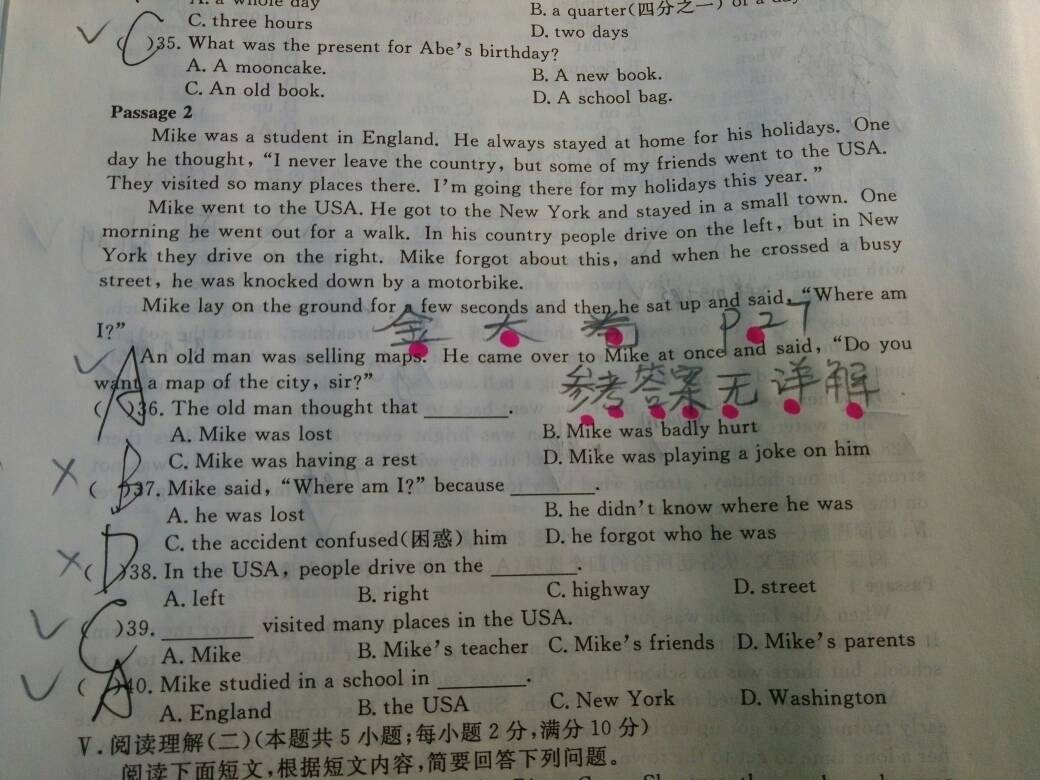 A. a whole day B. a quarter(四分之一) of a day
C. three hours D. two days
✓ ( C )35. What was the present for Abe's birthday?
A. A mooncake. B. A new book.
C. An old book. D. A school bag.
Passage 2
Mike was a student in England. He always stayed at home for his holidays. One
day he thought, “I never leave the country, but some of my friends went to the USA.
They visited so many places there. I'm going there for my holidays this year.”
Mike went to the USA. He got to the New York and stayed in a small town. One
morning he went out for a walk. In his country people drive on the left, but in New
York they drive on the right. Mike forgot about this, and when he crossed a busy
street, he was knocked down by a motorbike.
Mike lay on the ground for a few seconds and then he sat up and said, “Where am
I?”
金太 P27
An old man was selling maps. He came over to Mike at once and said, “Do you
want a map of the city, sir?”
参考答案无详解
✓ ( A )36. The old man thought that ________.
A. Mike was lost B. Mike was badly hurt
C. Mike was having a rest D. Mike was playing a joke on him
× ( B )37. Mike said, “Where am I?” because ________.
A. he was lost B. he didn't know where he was
C. the accident confused(困惑) him D. he forgot who he was
× ( D )38. In the USA, people drive on the ________.
A. left B. right C. highway D. street
✓ ( C )39. ________ visited many places in the USA.
A. Mike B. Mike's teacher C. Mike's friends D. Mike's parents
✓ ( A )40. Mike studied in a school in ________.
A. England B. the USA C. New York D. Washington
Ⅴ.阅读理解(二)(本题共5小题;每小题2分,满分10分)
阅读下面短文,根据短文内容,简要回答下列问题。